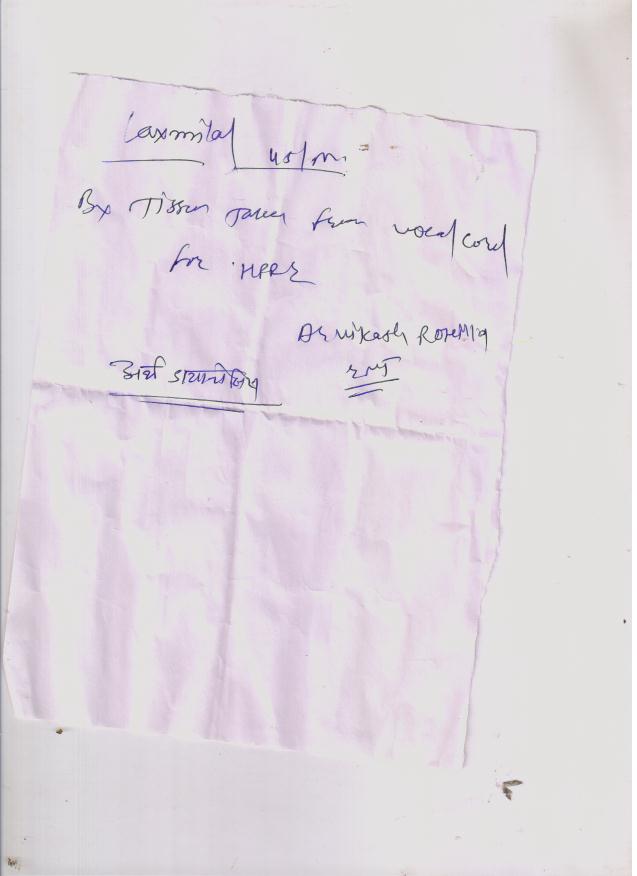 Laxmilal 45/m.
Bx Tissue taken from vocal cord
for HPRE
Dr Vikash Rotemia
ENT
अर्थ डायग्नोस्टिक